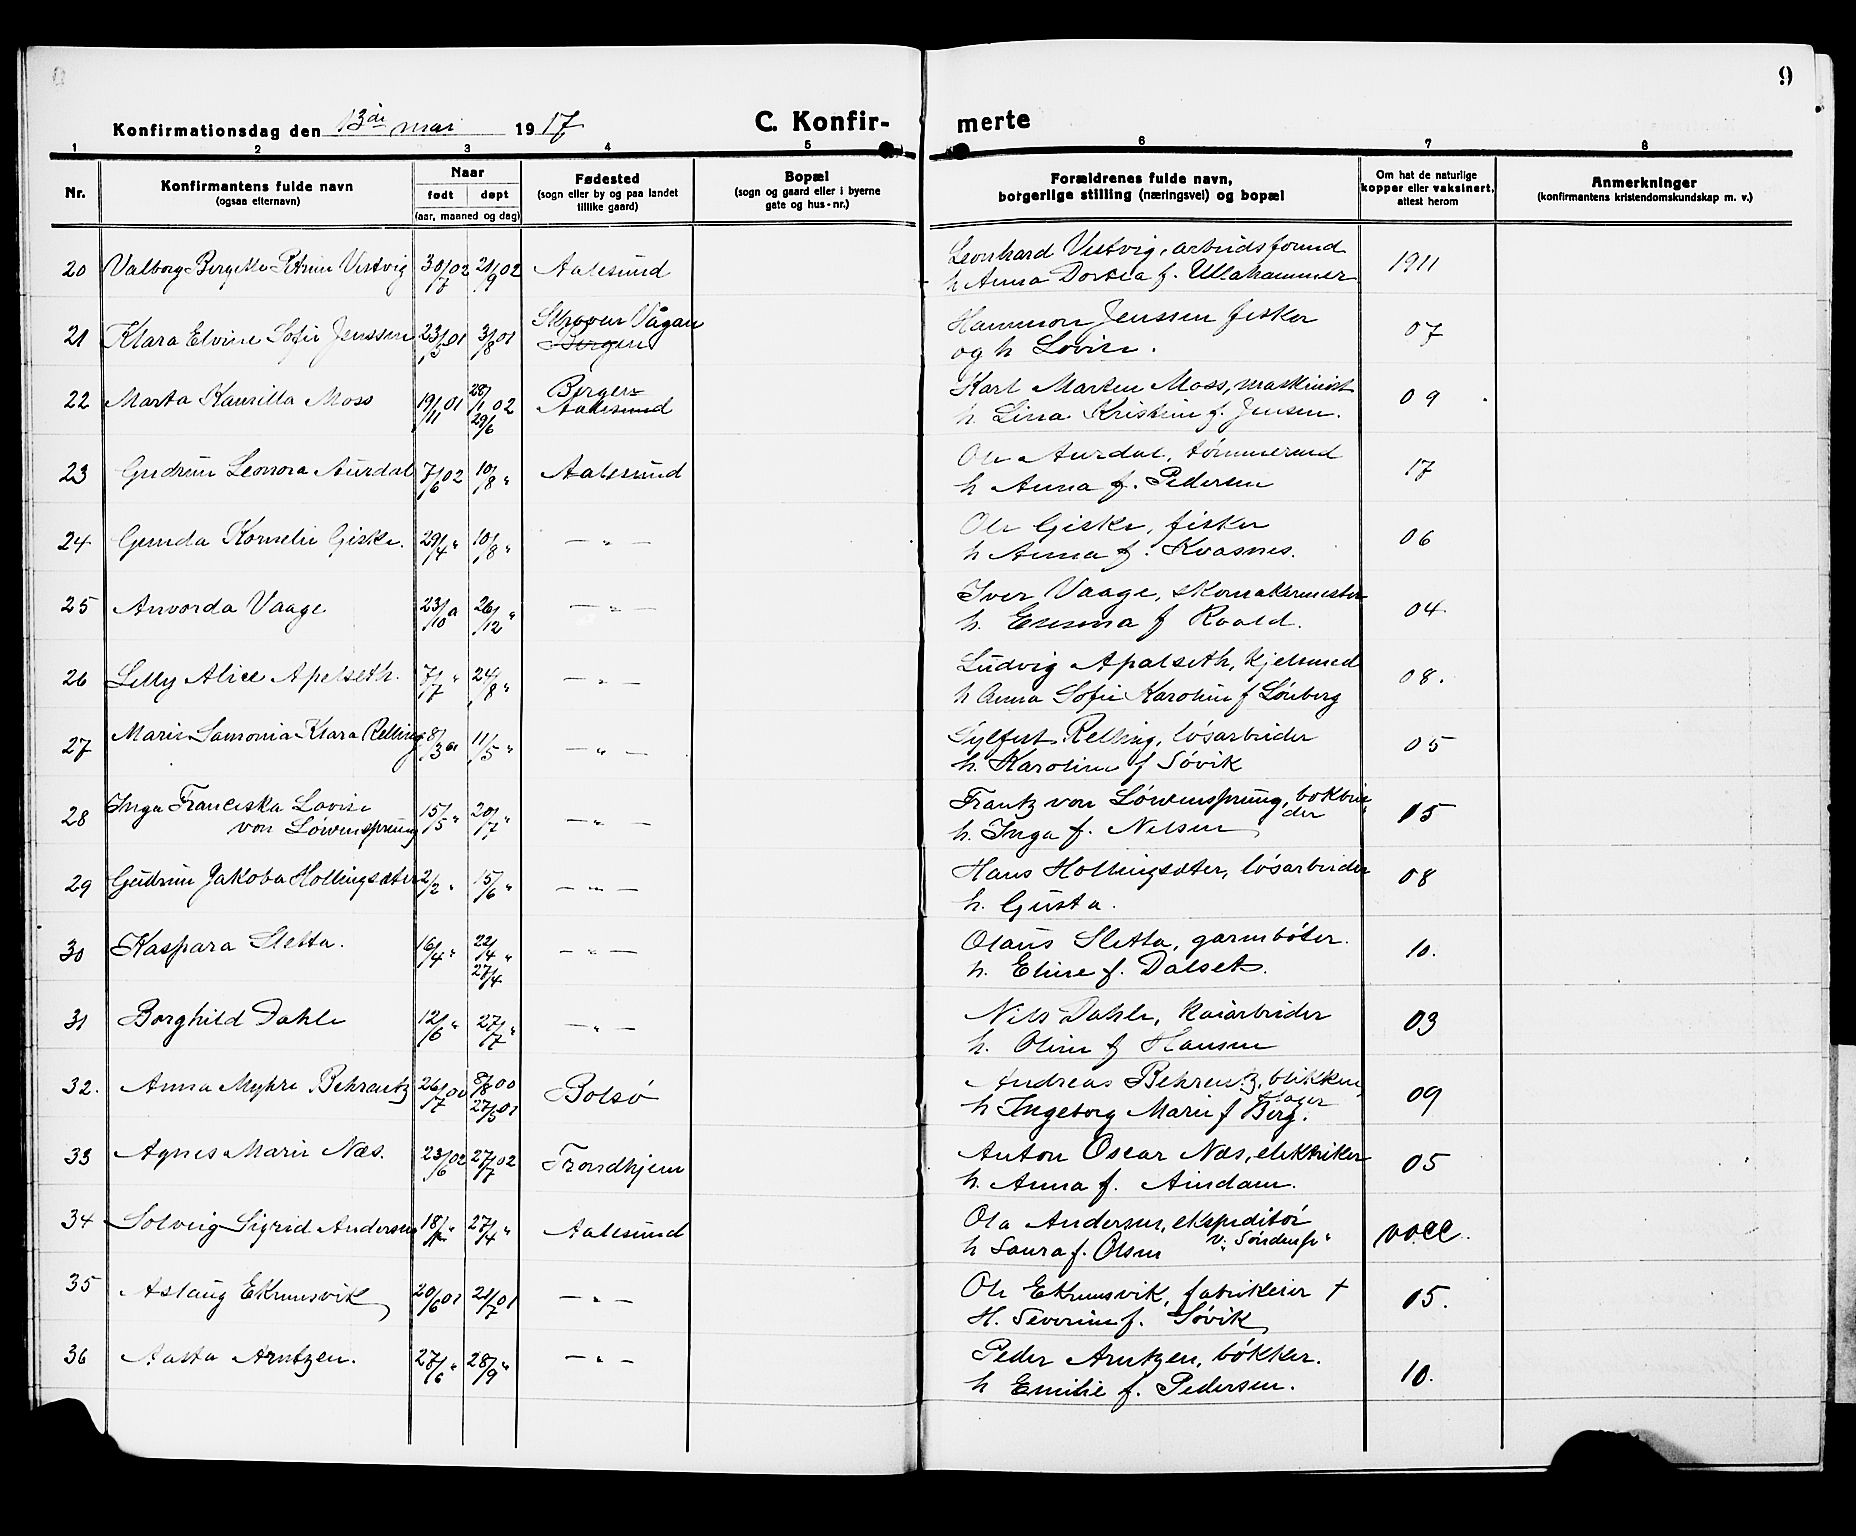 Konfirmationsdag den 13de mai 1917
C. Konfir-
merte
9
1 2 3 4 5 6 7 8
Nr.
Konfirmantens fulde navn
(ogsaa efternavn)
Naar
født døpt
(aar, maaned og dag)
Fødested
(sogn eller by og paa landet
tillike gaard)
Bopæl
(sogn og gaard eller i byerne
gate og hus-nr.)
Forældrenes fulde navn,
borgerlige stilling (næringsvei) og bopæl
Om hat de naturlige
kopper eller vaksinert,
attest herom
Anmerkninger
(konfirmantens kristendomskundskap m. v.)
20 Valborg Bergitte Petrine Vestvig 30/7 02 21/9 02 Aalesund
Leonhard Vestvig, arbeidsformd
h Anna Dortea f. Ullahammer 1911
21 Klara Elvine Sofie Jenssen 23/5 01 3/8 01 Skroven Vågan
Bergen
Jenssen fisker
og h Lovise. 07
22 Marta Kamilla Moss 19/11 01 28/1 02 29/6 Bergen
Aalesund
Karl Marten Moss, maskinist
h. Lina Kristine f. Jensen. 09
23 Gudrun Leonora Aurdal 7/6 02 10/8 " Aalesund
Ole Aurdal, tømmermd
h Anna f. Pedersen 17
24 Gunda Kornelie Giske. 29/4 " 10/8 " — " —
Ole Giske, fisker
h Anna f. Kvasnes. 06
25 Anvorda Vaage 23/10 26/12 " — " —
Iver Vaage, skomakermester
h. Emma f Roald. 04
26 Lilly Alice Apelseth. 7/7 " 24/8 " — " —
Ludvig Apalseth, kjelsmed
h Anna Sofie Karoline f Lønberg 08.
27 Marie Samonia Klara Relling 8/3 11/5 " — " —
Sylfest Relling, løsarbeider
h. Karoline f Søvik 05
28 Inga Franciska Lovise
von Løwensprung 15/5 " 20/7 " — " —
Frantz von Løwensprung, bokbin
der
h. Inga f. Nelsen 15
29 Gudrun Jakoba Hollingsæter 2/2 " 15/6 " — " —
Hans Hollingsæter, løsarbeider
h. Gusta. 08
30 Kaspara Sletta. 16/4 " 22/4 " 27/4 — " —
Olaus Sletta, garnbøter.
h. Eline f. Dalset. 10.
31 Borghild Dahle 12/6 " 27/7 " — " —
Nils Dahle, kaiarbeider
h. Oline f Hansen 03
32. Anna Myhre Behrentz 26/7 00 8/8 00 27/5 01 Bolsø
Andreas Behrentz, blikken
slager
h Ingeborg Marie f Berg. 09
33 Agnes Marie Næs. 23/6 02 27/7 02 Trondhjem
Anton Oscar Næs, elektriker
h. Anna f. Aindam. 05
34 Solveig Sigrid Andersen 18/ " 27/4 " Aalesund
Ola Andersen, ekspeditør
h Laura f. Olsen v. "Søndenfj" vacc.
35 Aslaug Ekrumsvik 20/6 01 21/7 01 — " —
Ole Ekrumsvik, fabrikeier †
H. Severine f. Søvik 15.
36 Aasta Arntzen. 27/6 " 28/9 " — " —
Peder Arntzen, bøkker.
h Emilie f. Pedersen. 10.